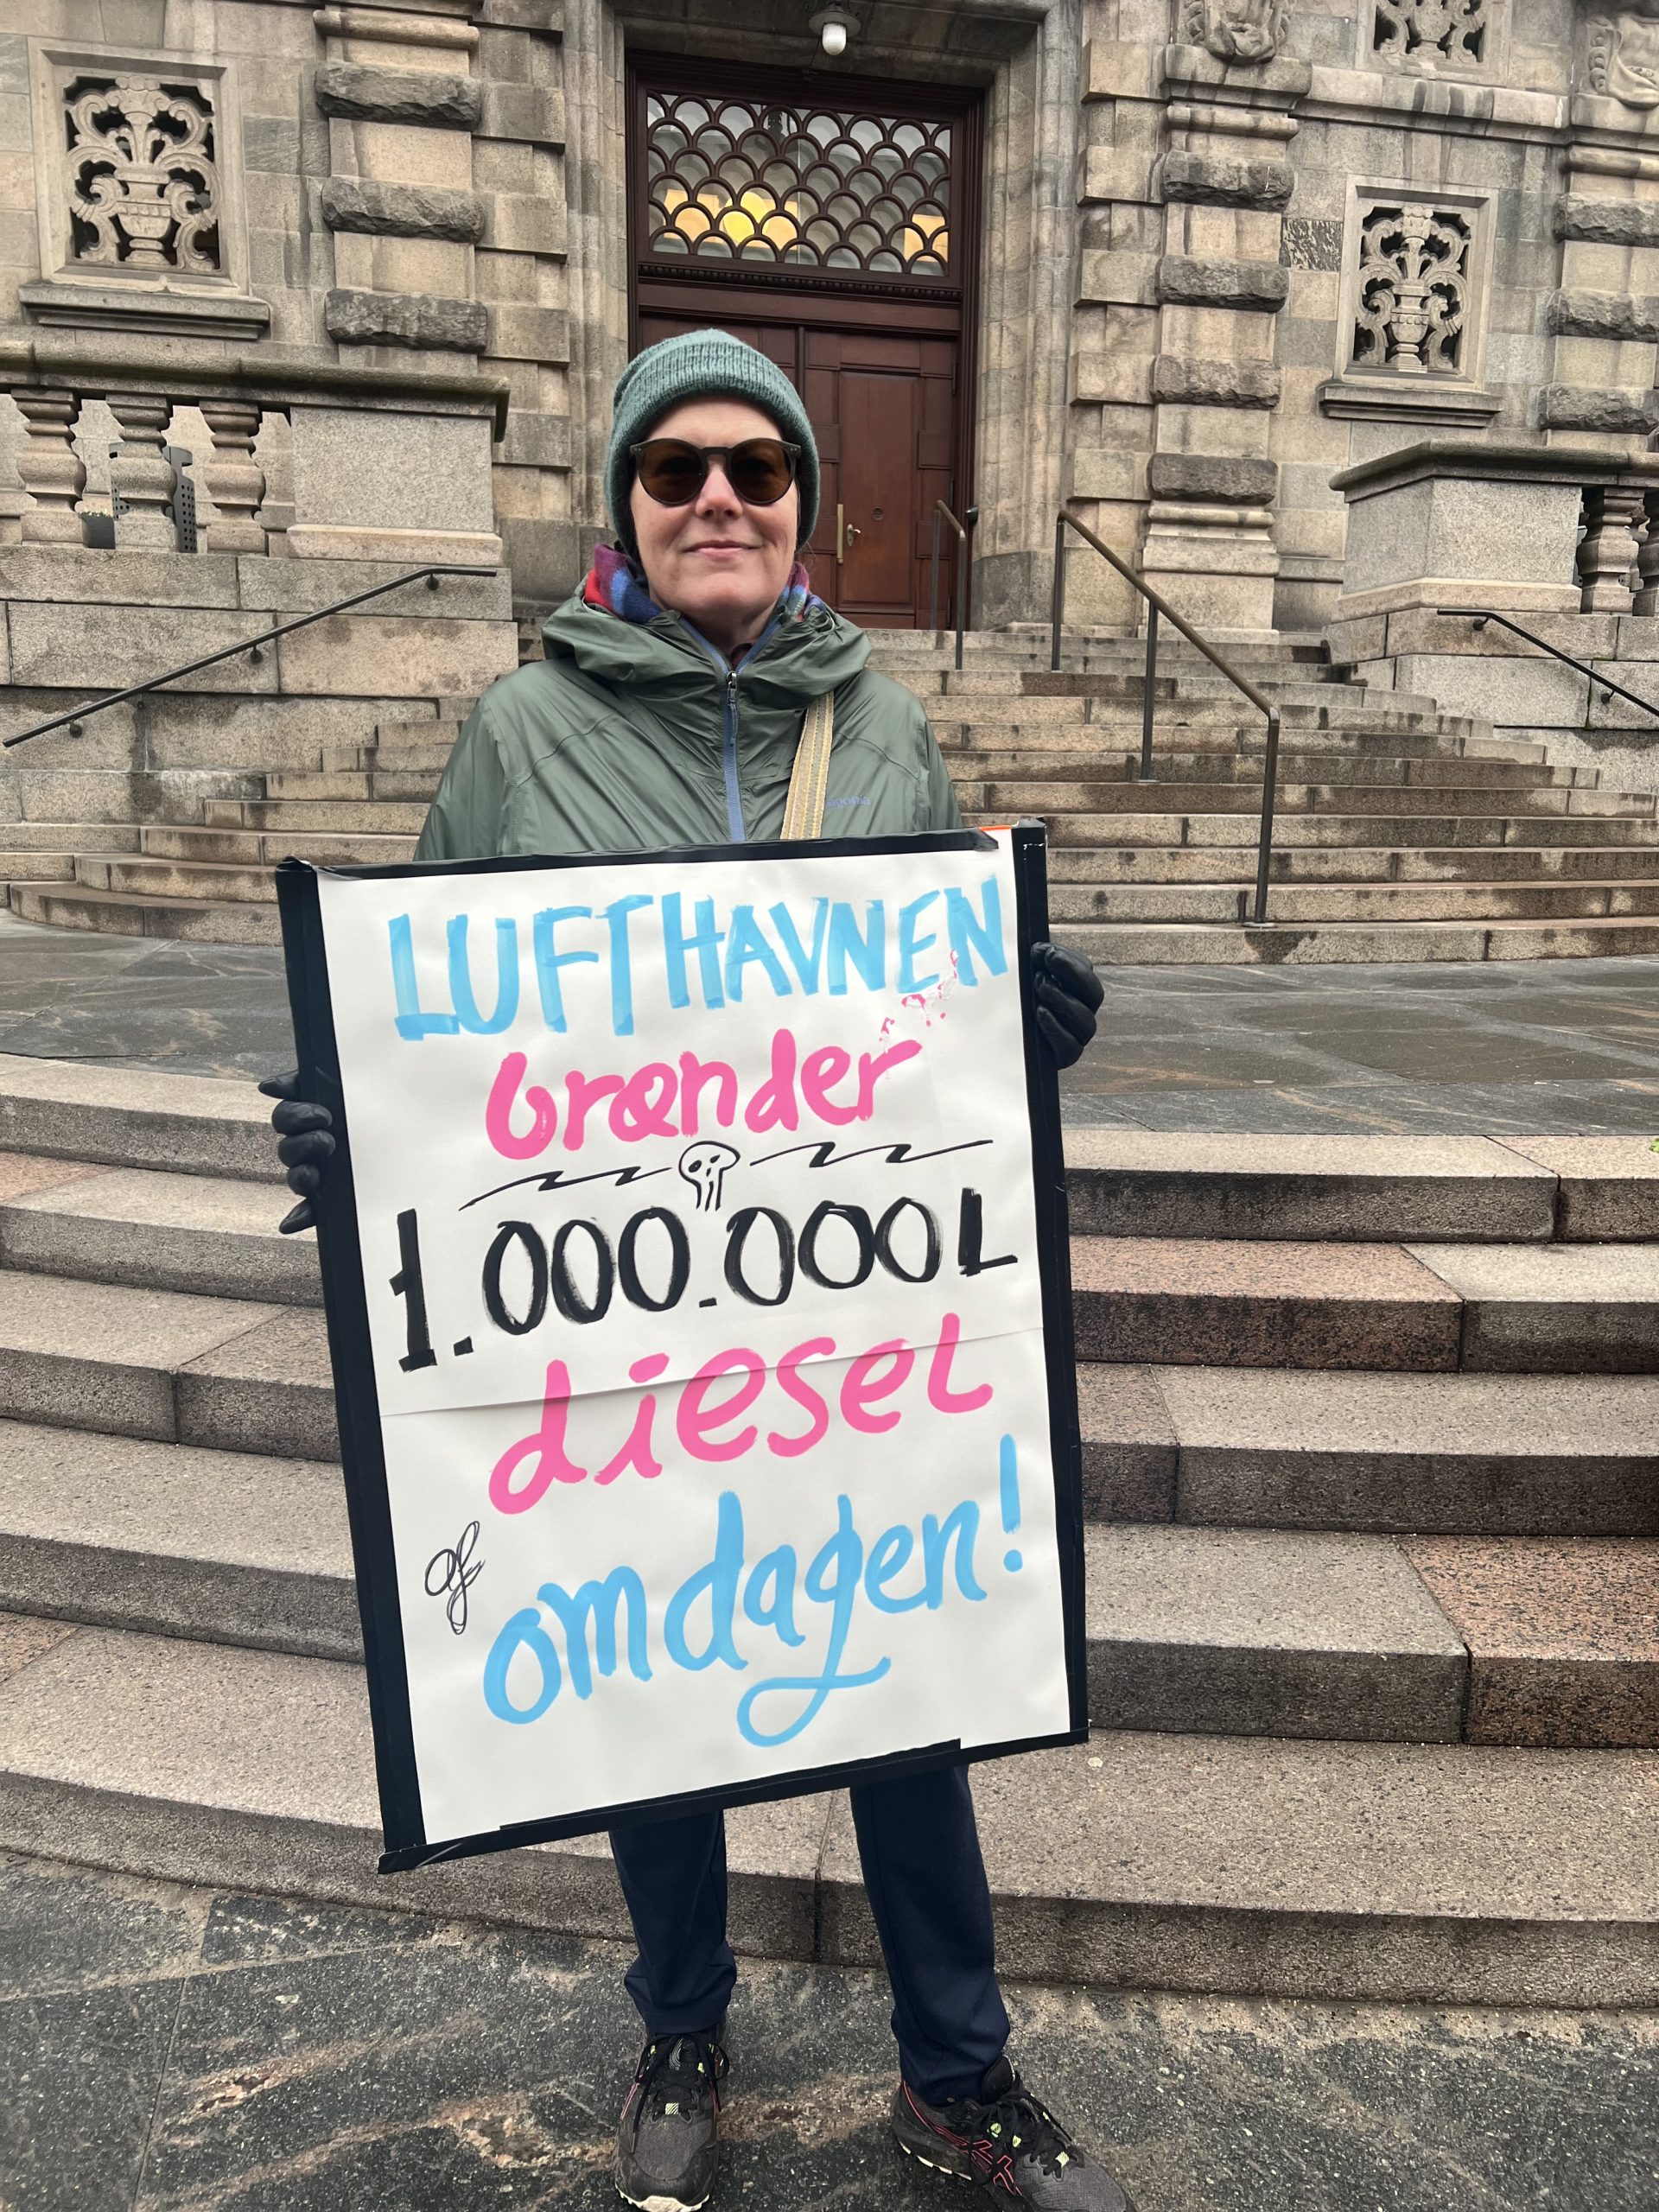 LUFTHAVNEN
brænder
1.000.000L
diesel
af
omdagen!